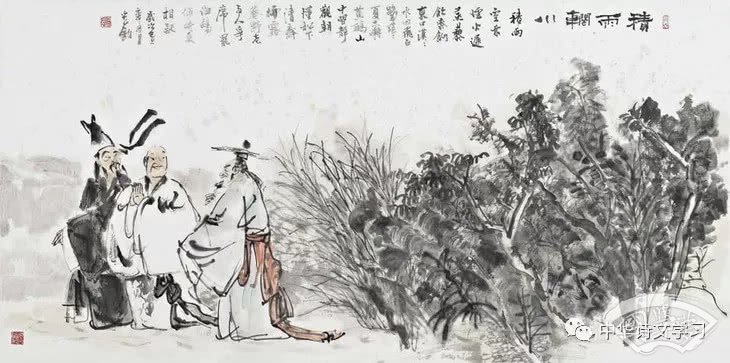 積雨輞川
積雨
空林
煙火遲
蒸藜
炊黍餉
東菑漠漠
水田飛白
鷺陰陰
夏木囀
黃鸝山
中習靜
觀朝
槿松下
清齋
折露
葵野老
與人爭
席罷
海鷗
何事更
相疑
中华诗文学习